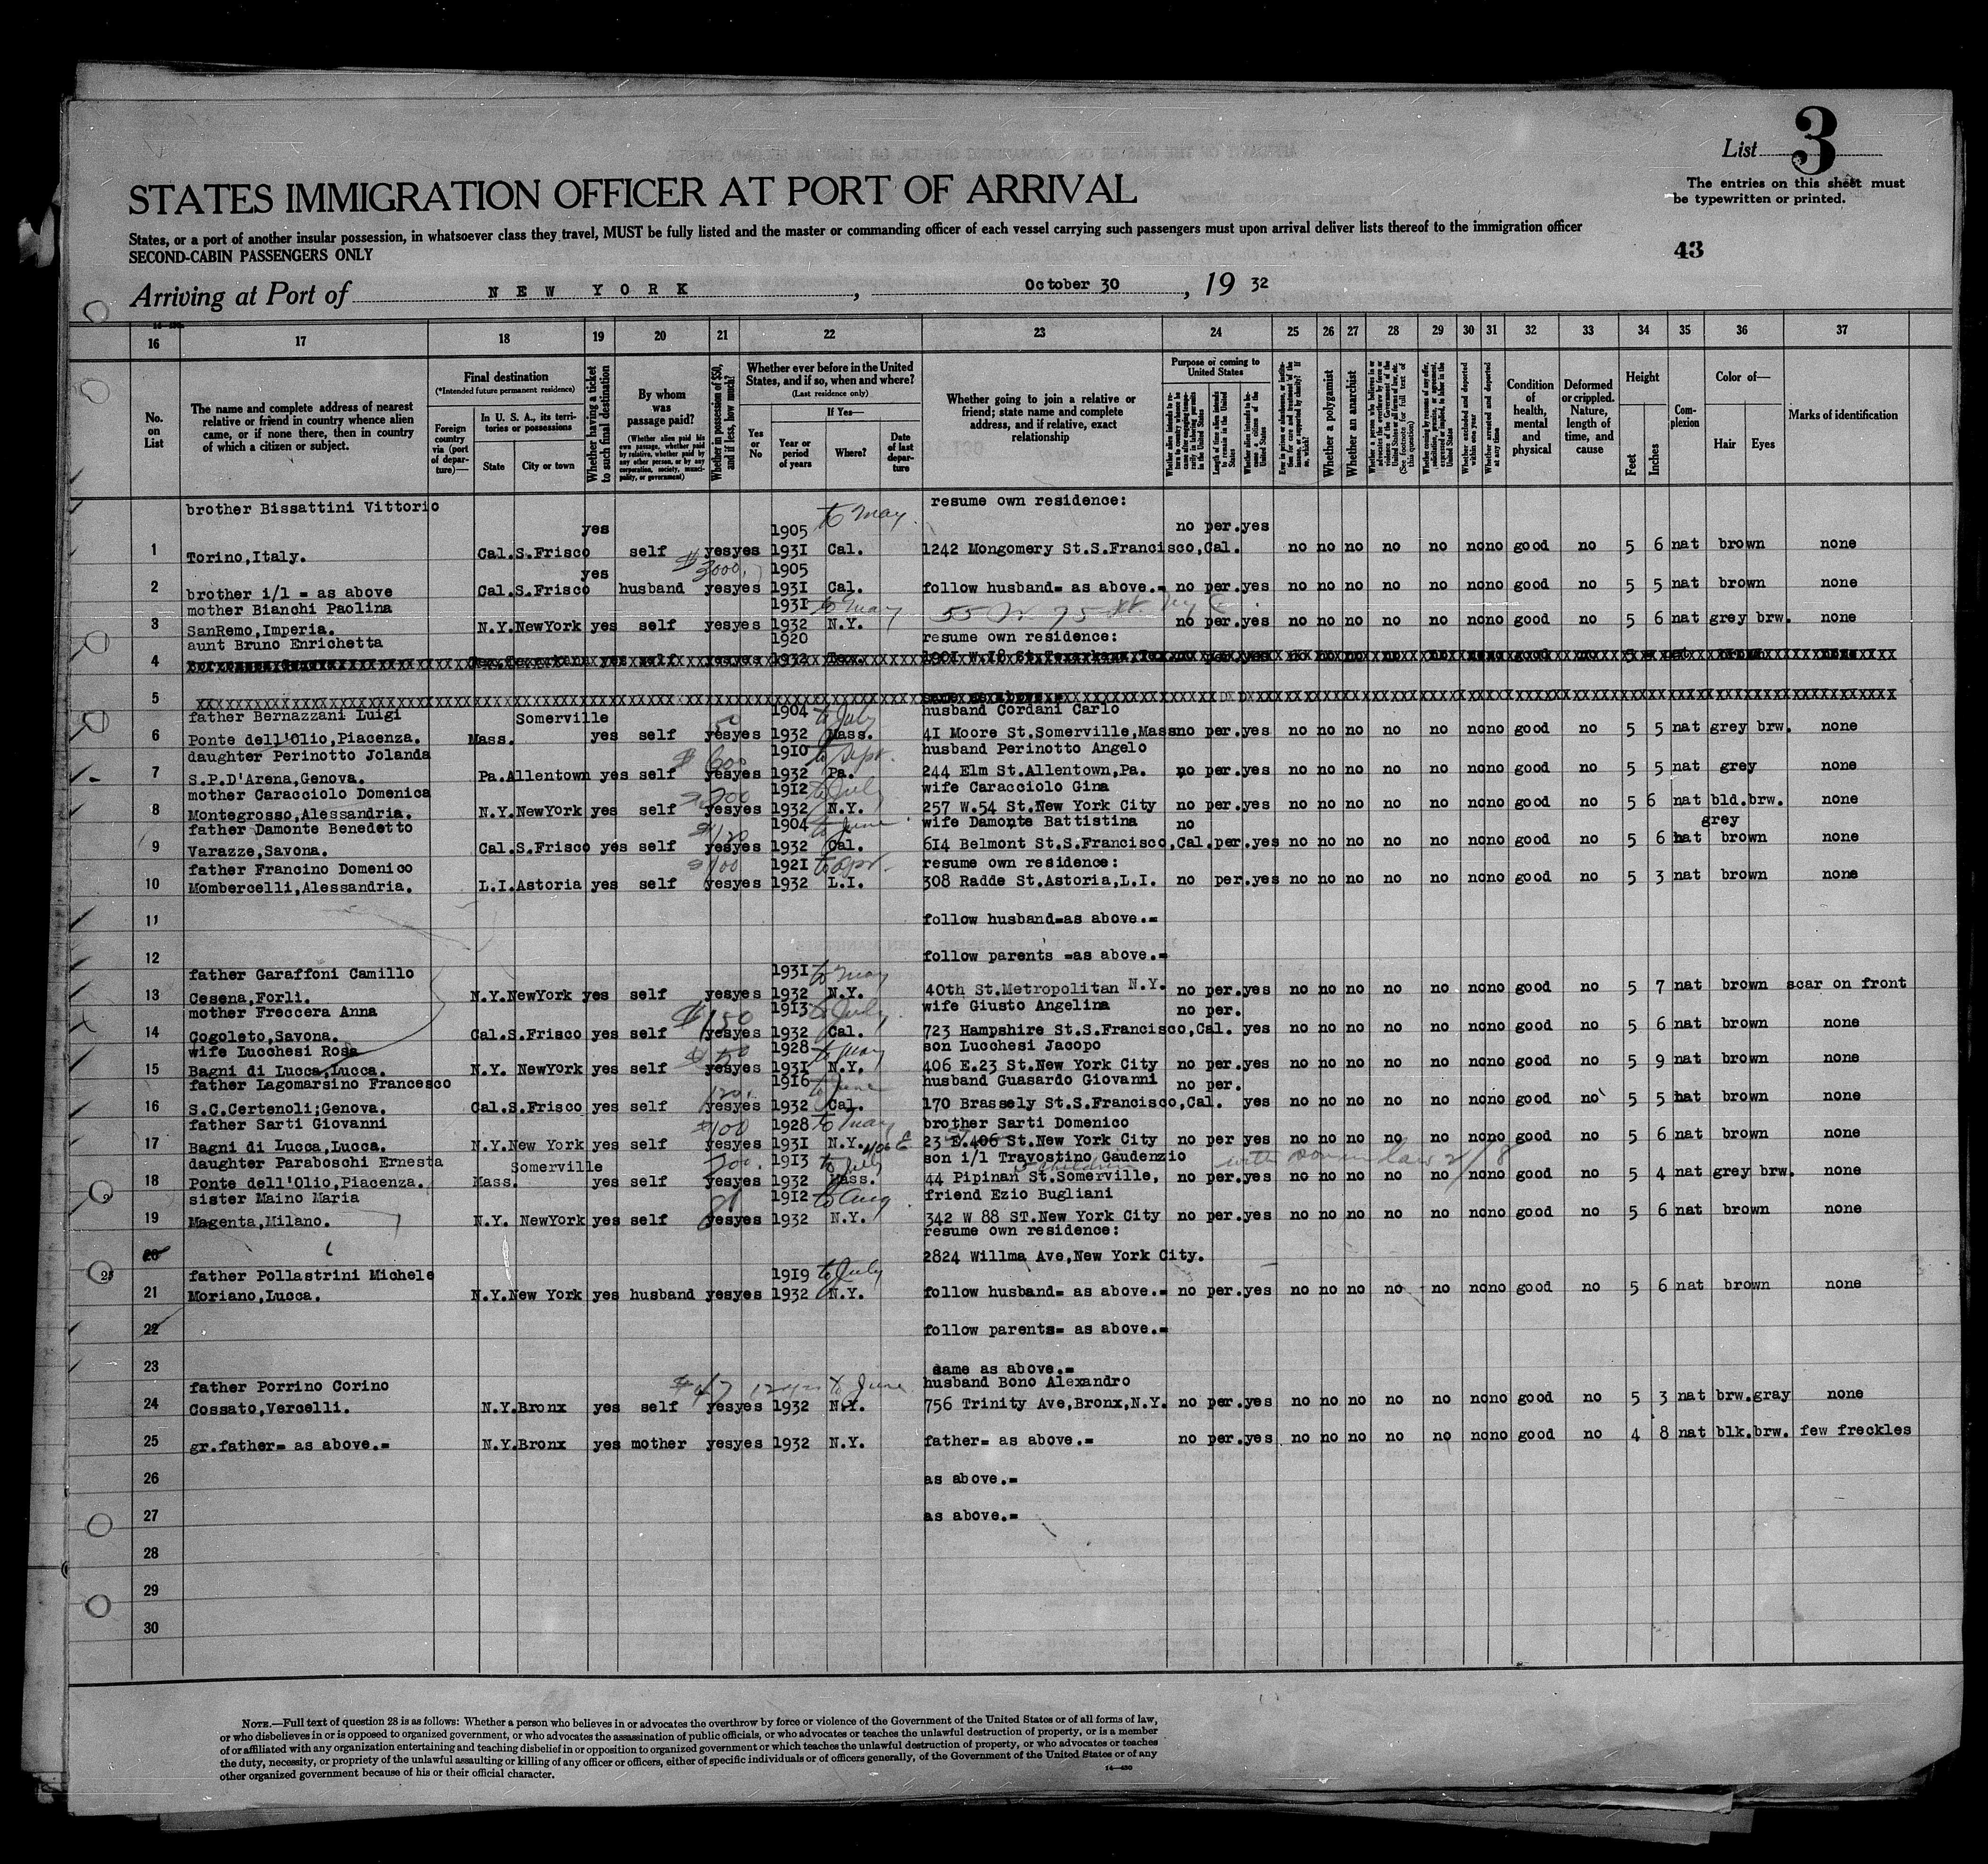 List 3
The entries on this sheet must
be typewritten or printed.
STATES IMMIGRATION OFFICER AT PORT OF ARRIVAL
States, or a port of another insular possession, in whatsoever class they travel, MUST be fully listed and the master or commanding officer of each vessel carrying such passengers must upon arrival deliver lists thereof to the immigration officer
SECOND-CABIN PASSENGERS ONLY
43
Arriving at Port of NEW YORK, October 30, 19 32
16 17 18 19 20 21 22 23 24 25 26 27 28 29 30 31 32 33 34 35 36 37
No. on List
The name and complete address of nearest relative or friend in country whence alien came, or if none there, then in country of which a citizen or subject.
Final destination
(*Intended future permanent residence)
Foreign country via (port of departure)—
In U. S. A., its territories or possessions
State
City or town
Whether having a ticket to such final destination
By whom was passage paid?
(Whether alien paid his own passage, whether paid by relative, whether paid by any other person, or by any corporation, society, municipality, or government)
Whether in possession of $50, and if less, how much?
Whether ever before in the United States, and if so, when and where?
(Last residence only)
Yes or No
If Yes—
Year or period of years
Where?
Date of last departure
Whether going to join a relative or friend; state name and complete address, and if relative, exact relationship
Purpose of coming to United States
Length of time alien intends to remain in the United States
Whether alien intends to become a citizen of the United States
Whether a polygamist
Whether an anarchist
Whether excluded and deported within one year
Whether arrested and deported at any time
Condition of health, mental and physical
Deformed or crippled. Nature, length of time, and cause
Height
Feet
Inches
Complexion
Color of—
Hair
Eyes
Marks of identification
brother Bissattini Vittorio resume own residence:
yes 1905 to May no per.yes
1 Torino,Italy. Cal.S.Frisco self yesyes 1931 Cal. 1242 Mongomery St.S.Francisco,Cal. no no no no no nono good no 5 6 nat brown none
yes $3000. 1905
2 brother i/l = as above Cal.S.Frisco husband yesyes 1931 Cal. follow husband= as above.= no per.yes no no no no no nono good no 5 5 nat brown none
mother Bianchi Paolina 1931 to May 55 W 75 St.
3 SanRemo,Imperia. N.Y.NewYork yes self yesyes 1932 N.Y. no per.yes no no no no no nono good no 5 6 nat grey brw. none
aunt Bruno Enrichetta 1920 resume own residence:
4
5
father Bernazzani Luigi Somerville 50 1904 to July husband Cordani Carlo
6 Ponte dell'Olio,Piacenza. Mass. yes self yesyes 1932 Mass. 41 Moore St.Somerville,Massno per.yes no no no no no nono good no 5 5 nat grey brw. none
daughter Perinotto Jolanda $600 1910 to Apr. husband Perinotto Angelo
7 S.P.D'Arena,Genova. Pa.Allentown yes self yesyes 1932 Pa. 244 Elm St.Allentown,Pa. no per.yes no no no no no nono good no 5 5 nat grey none
mother Caracciolo Domenica 1912 to July wife Caracciolo Gina
8 Montegrosso,Alessandria. N.Y.NewYork yes self yesyes 1932 N.Y. 257 W.54 St.New York City no per.yes no no no no no nono good no 5 6 nat bld.brw. none
father Damonte Benedetto $120 1904 to June wife Damonte Battistina no grey
9 Varazze,Savona. Cal.S.Frisco yes self yesyes 1932 Cal. 614 Belmont St.S.Francisco,Cal.per.yes no no no no no nono good no 5 6 nat brown none
father Francino Domenico $100 1921 to Apr. resume own residence:
10 Mombercelli,Alessandria. L.I.Astoria yes self yesyes 1932 L.I. 308 Radde St.Astoria,L.I. no per.yes no no no no no nono good no 5 3 nat brown none
11 follow husband=as above.=
12 follow parents =as above.=
father Garaffoni Camillo 1931 to May
13 Cesena,Forli. N.Y.NewYork yes self yesyes 1932 N.Y. 40th St.Metropolitan N.Y. no per.yes no no no no no nono good no 5 7 nat brown scar on front
mother Freccera Anna $150 1913 to July wife Giusto Angelina no per.
14 Cogoleto,Savona. Cal.S.Frisco yes self yesyes 1932 Cal. 723 Hampshire St.S.Francisco,Cal. yes no no no no no nono good no 5 6 nat brown none
wife Lucchesi Rosa $50 1928 to May son Lucchesi Jacopo
15 Bagni di Lucca,Lucca. N.Y. NewYork yes self yesyes 1931 N.Y. 406 E.23 St.New York City no per.yes no no no no no nono good no 5 9 nat brown none
father Lagomarsino Francesco 120. 1916 to June husband Guasardo Giovanni no per.
16 S.C.Certenoli;Genova. Cal.S.Frisco yes self yesyes 1932 Cal. 170 Brassely St.S.Francisco,Cal. yes no no no no no nono good no 5 5 nat brown none
father Sarti Giovanni $100 1928 to May brother Sarti Domenico
17 Bagni di Lucca,Lucca. N.Y.New York yes self yesyes 1931 N.Y. 406 E 23 E.406 St.New York City no per yes no no no no no nono good no 5 6 nat brown none
daughter Paraboschi Ernesta Somerville 200. 1913 to July son i/l Travostino Gaudenzio with son in law
18 Ponte dell'Olio,Piacenza. Mass. yes self yesyes 1932 Mass. 44 Pipinan St.Somerville, no per.yes no no no no no nono good no 5 4 nat grey brw. none
sister Maino Maria 1912 to Aug friend Ezio Bugliani
19 Magenta,Milano. N.Y. NewYork yes self yesyes 1932 N.Y. 342 W 88 ST.New York City no per.yes no no no no no nono good no 5 6 nat brown none
resume own residence:
20 2824 Willma Ave,New York City.
father Pollastrini Michele 1919 to July
21 Moriano,Lucca. N.Y.New York yes husband yesyes 1932 N.Y. follow husband= as above.= no per.yes no no no no no nono good no 5 6 nat brown none
22 follow parents= as above.=
23 same as above.=
father Porrino Corino $47 12 yrs to June husband Bono Alexandro
24 Cossato,Vercelli. N.Y.Bronx yes self yesyes 1932 N.Y. 756 Trinity Ave,Bronx,N.Y. no per.yes no no no no no nono good no 5 3 nat brw.gray none
25 gr.father= as above.= N.Y.Bronx yes mother yesyes 1932 N.Y. father= as above.= no per.yes no no no no no nono good no 4 8 nat blk.brw. few freckles
26 as above.=
27 as above.=
28
29
30
NOTE.—Full text of question 28 is as follows: Whether a person who believes in or advocates the overthrow by force or violence of the Government of the United States or of all forms of law,
or who disbelieves in or is opposed to organized government, or who advocates the assassination of public officials, or who advocates or teaches the unlawful destruction of property, or is a member
of or affiliated with any organization entertaining and teaching disbelief in or opposition to organized government or which teaches the unlawful destruction of property, or who advocates or teaches
the duty, necessity, or propriety of the unlawful assaulting or killing of any officer or officers, either of specific individuals or of officers generally, of the Government of the United States or of any
other organized government because of his or their official character.
14—430